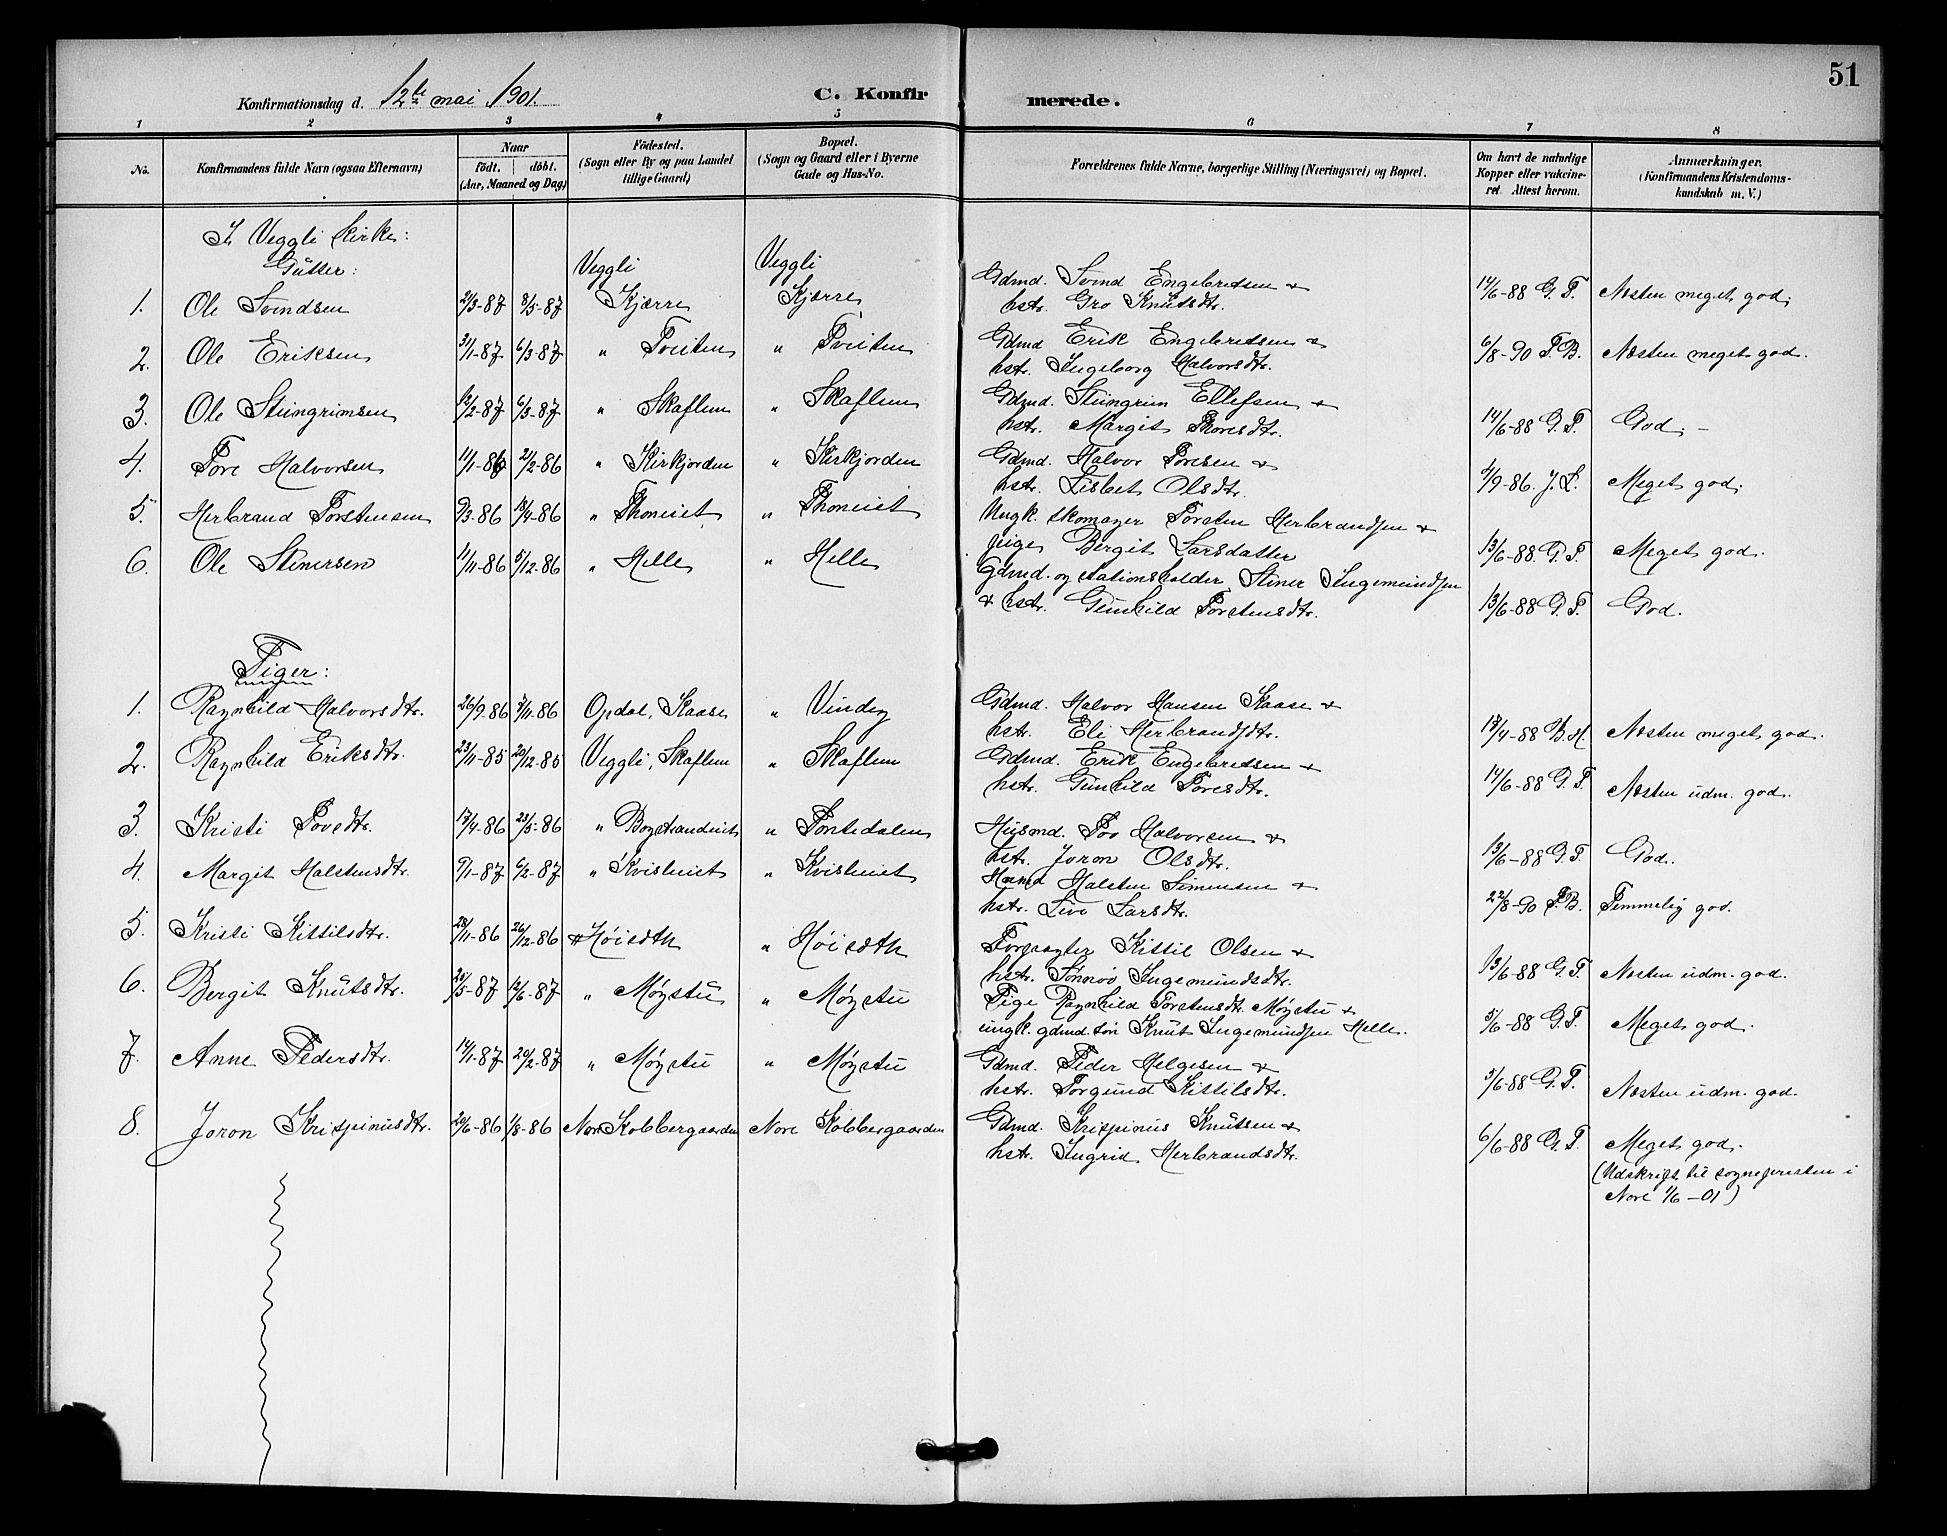 51
Konfirmationsdag d. 12te mai 1901. C. Konfirmerede.
1 2 3 4 5 6 7 8
No. Konfirmandens fulde Navn (ogsaa Efternavn) Naar födt. döbt. (Aar, Maaned og Dag) Födested. (Sogn eller By og paa Landet tillige Gaard) Bopæl. (Sogn og Gaard eller i Byerne Gade og Hus-No. Forældrenes fulde Navne, borgerlige Stilling (Næringsvei) og Bopæl. Om havt de naturlige Kopper eller vakcineret. Attest herom. Anmærkninger. (Konfirmandens Kristendomskundskab m. V.)
I Veggli kirke:
Gutter:
1. Ole Svendsen 2/3-87 8/5-87 Veggli Kjærre Veggli Kjærre Gdmd. Svend Engebretsen & hstr. Gro Knutsdtr. 14/6-88 G.T. Næsten meget god.
2. Ole Eriksen 31/1-87 6/3-87 " Tveiten " Tveiten Gdmd Erik Engebretsen & hstr. Ingeborg Halvorsdtr. 6/8-90 T.B. Næsten meget god.
3. Ole Steingrimsen 12/2-87 6/3-87 " Skaflem " Skaflem Gdmd. Steingrim Ellefsen & hstr. Margit Thoresdtr. 14/6-88 G.T. God.-
4. Tore Halvorsen 11/1-86 21/2-86 " Kirkjorden " Kirkjorden Gdmd. Halvor Toresen & hstr. Lisbet Olsdtr. 4/9-86. J.L. Meget god.
5. Herbrand Torstensen 9/3-86 18/4-86 " Thoneiet " Thoneiet Ungk. skomager Torsten Herbrandsen & pige Bergit Larsdatter 13/6-88 G.T. Meget god.
6. Ole Steinersen 11/11-86 5/12-86 " Helle " Helle Gdmd. og stationsholder Steiner Ingemundsen & hstr. Gunhild Torstensdtr. 13/6-88 G.T. God.
Piger:
1. Ragnhild Halvorsdtr. 26/9-86 7/11-86 Opdal, Kaase " Vindeg Gdmd. Halvor Hansen Kaase & hstr. Eli Herbrandsdtr. 18/4-88 B.H. Næsten meget god.
2. Ragnhild Eriksdtr. 23/11-85 20/12-85 Veggli, Skaflem " Skaflem Gdmd. Erik Engebretsen & hstr. Gunhild Toresdtr. 14/6-88 G.T. Næsten udm. god.
3. Kristi Tovedtr. 17/4-86 23/5-86 " " Tontedalen Husmd. Tov Halvorsen & hstr. Joron Olsdtr. 13/6-88 G.T. God.
4. Margit Halstensdtr. 9/1-87 6/2-87 " Kvisleiet " Kvisleiet Halsten Simensen & hstr. Live Larsdtr. 22/8-90 T.B. Temmelig god.
5. Kristi Kittilsdtr. 28/11-86 26/12-86 " Høiseth " Høiseth Forpagter Kittil Olsen & hstr. Sønnøv Ingemundsdtr. 13/6-88 G.T. Næsten udm. god.
6. Bergit Knutsdtr. 20/5-87 12/6-87 " Møgstu " Møgstu Pige Ragnhild Torstensdtr. Møgstu & ungk. gdmd.søn Knut Ingemundsen Helle. 5/6-88 G.T. Meget god.
7. Anne Pedersdtr. 14/1-87 20/2-87 " Møgstu " Møgstu Gdmd. Peder Helgesen & hstr. Torgund Kittilsdtr. 5/6-88 G.T. Næsten udm. god.
8. Joron Krispinusdtr. 20/6-86 1/8-86 Nore Kobbergaarden Nore Kobbergaarden Gdmd. Krispinus Knutsen & hstr. Ingrid Herbrandsdtr. 6/6-88 G.T. Meget god.
(Udskrift til sognepresten i
Nore 1/6-01)